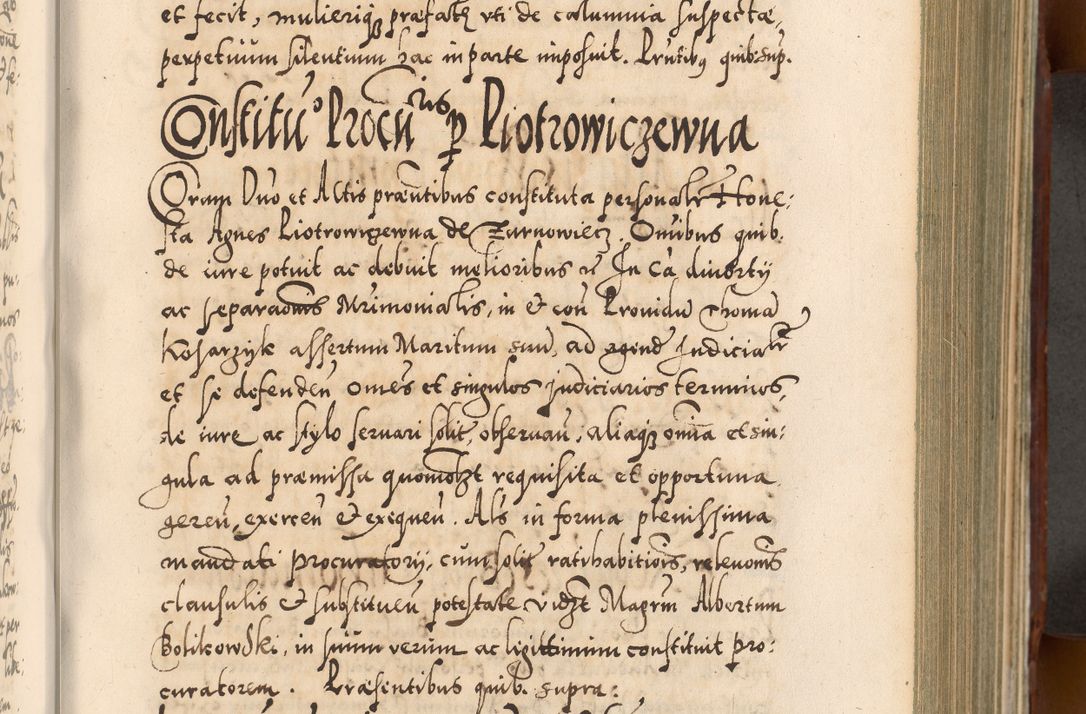 et fecit, mulieriq præfatæ uti de calumnia suspectæ,
perpetuum silentium hac in parte imposuit. Prntibus quib. sup.
Constituo Procuris p Piotrowiczewna
Coram Dno et Actis præntibus constituta personalr Hone:
sta Agnes Piotrowiczewna de Zarnowiecz. Omibus quib.
de iure potuit ac debuit melioribus In Ca divorty
ac separaonis Mrimonialis, in et con Providu Thoma
Kosarzyk assertum Maritum suu, ad agend Judicialr
et se defenden omes et singulos judiciarios terminos,
de iure ac stylo servari solit, observan, aliaq omia et sin:
gula ad præmissa quomolzt requisita et opportuna
geren, exercen et exequen. Als in forma plenissima
mandati procuratory, cum solit ratihabitiois, relevonis
clausulis et substituen potestate vidzt Magrm Albertum
Bolikowski, in suum verum ac ligittimum constituit pro:
curatorem. Præsentibus quib. supra: